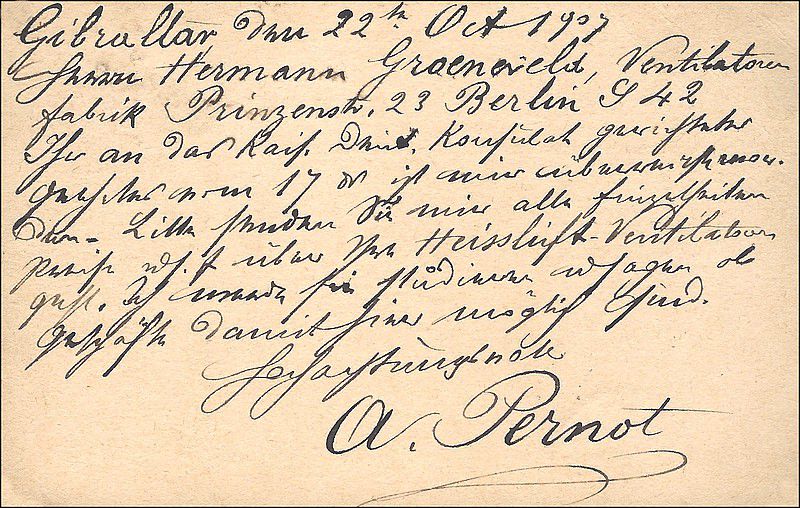 Gibraltar, den 22th Oct 1907
Herrn Hermann Groeneveld, Ventilatoren
fabrik Prinzenstr. 23 Berlin S 42
Ihr an das Kais. Deut. Konsulat gerichtetes
geehrtes vom 17 ds ist mir überwiesen wor-
den - Bitte senden Sie mir alle Einzelheiten
Preise usf. über Ihre Heissluft-Ventilatoren
gefl. Ich werde sie studieren u sagen ob
Geschäfte damit hier möglich sind.
Hochachtungsvoll
A. Pernot